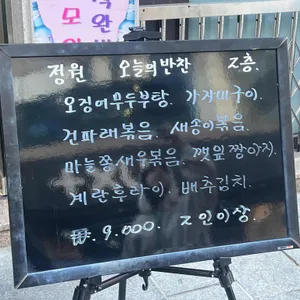 정원 오늘의반찬 2층.
오징어무두부탕. 가자미구이.
건파래볶음. 새송이볶음.
마늘쫑새우볶음. 깻잎짱아지.
계란후라이. 배추김치.
₩. 9.000. 2인이상.